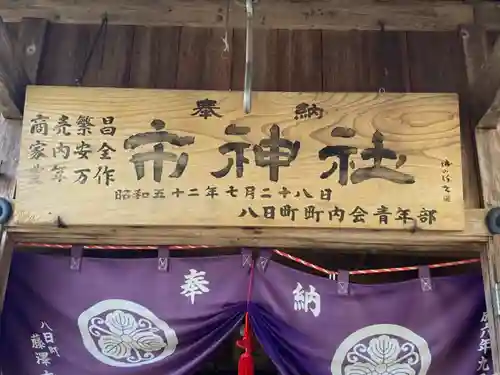 奉納
商売繁昌
家内安全
豊年万作
市神社
昭和五十二年七月二十八日
八日町町内会青年部
奉納
八日町
藤澤
六年九